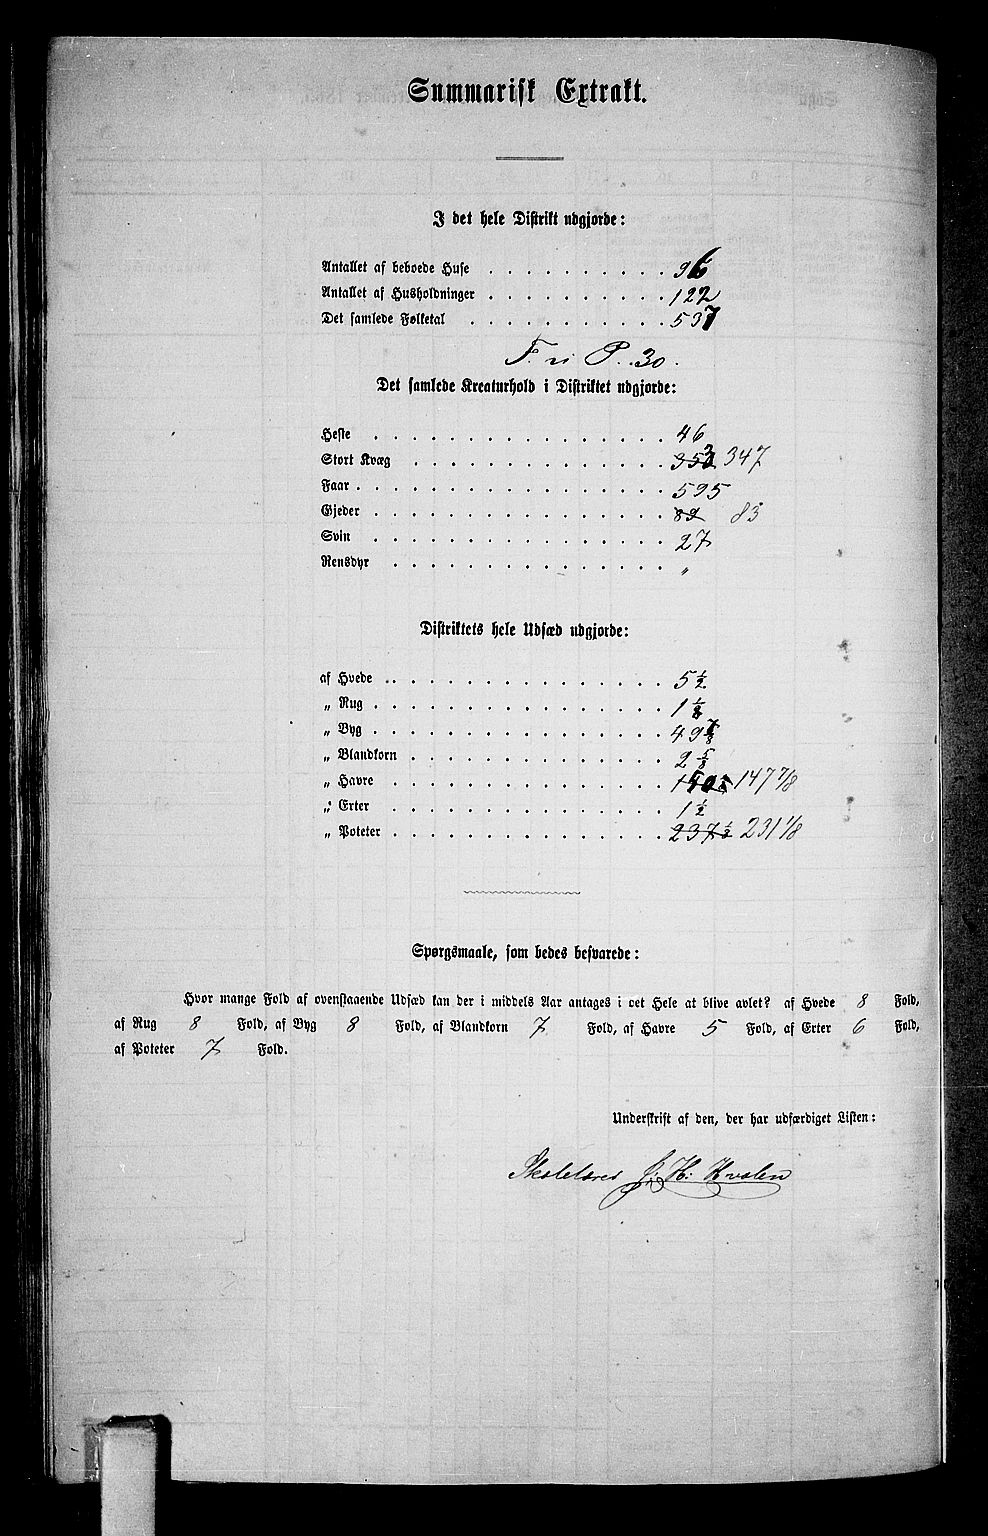 Summarisk Extrakt.
I det hele Distrikt udgjorde:
Antallet af beboede Huse . . . . . . . . . . 96
Antallet af Husholdninger . . . . . . . . . . 122
Det samlede Folketal . . . . . . . . . . . 537
F. vi P. 30.
Det samlede Kreaturhold i Distriktet udgjorde:
Heste . . . . . . . . . . . . . . . . 46
Stort Kvæg . . . . . . . . . . . . . . 353 347
Faar . . . . . . . . . . . . . . . . . 595
Gjeder . . . . . . . . . . . . . . . . 89 83
Svin . . . . . . . . . . . . . . . . 27
Rensdyr . . . . . . . . . . . . . . . "
Distriktets hele Udsæd udgjorde:
af Hvede . . . . . . . . . . . . . . . . 5 1/2
„ Rug . . . . . . . . . . . . . . . . 1 1/8
„ Byg . . . . . . . . . . . . . . . . 49 7/8
„ Blandkorn . . . . . . . . . . . . . . 2 5/8
„ Havre . . . . . . . . . . . . . . . 147 7/8
„ Erter . . . . . . . . . . . . . . . 1 1/2
„ Poteter . . . . . . . . . . . . . . . 237 1/2 231 1/8
Spørgsmaale, som bedes besvarede:
Hvor mange Fold af ovenstaaende Udsæd kan der i middels Aar antages i det Hele at blive avlet? af Hvede 8 Fold,
af Rug 8 Fold, af Byg 8 Fold, af Blandkorn 7 Fold, af Havre 5 Fold, af Erter 6 Fold,
af Poteter 7 Fold.
Underskrift af den, der har udfærdiget Listen:
Skolelærer J: H: Kvalen